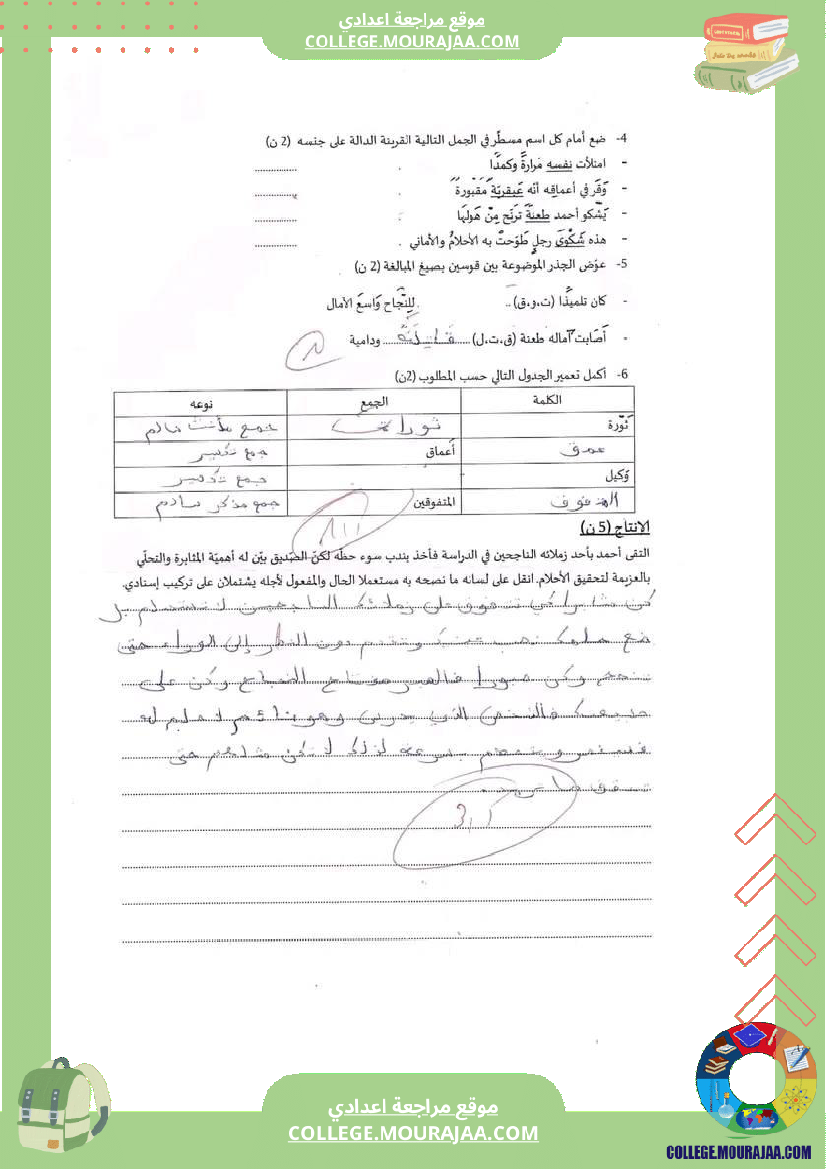 موقع مراجعة اعدادي
COLLEGE.MOURAJAA.COM
4- ضع أمام كل اسم مسطّر في الجمل التالية القرينة الدالة على جنسه (2 ن)
- امتلأت نفسه مرارةً وكمدًا ...............
- وَقَر في أعماقِه أنّه عَبقريّة مَقْبورة ...............
- يَشكو أحمد طعنةً ترنّح مِنْ هَولِهَا ...............
- هذه شَكْوَى رجلٍ طوّحتْ به الأحلامُ والأماني ...............
5- عوّض الجذر الموضوعة بين قوسين بصيغ المبالغة (2 ن)
- كان تلميذًا (ت،و،ق) .. للنّجاح وَاسعَ الآمال
- أصَابت آماله طعنة (ق،ت،ل) ..... قاتلة ..... ودامية
6- أكمل تعمير الجدول التالي حسب المطلوب (2ن)
الكلمة الجمع نوعه
ثَوْرَة ثورات جمع مأنث سالم
عمق أعماق جمع تكسير
وَكيل جمع تكسير
المتفوقين جمع مذكر سالم
الانتاج (5 ن)
التقى أحمد بأحد زملائه الناجحين في الدراسة فأخذ يندب سوء حظّه لكنّ الصّديق بيّن له أهميّة المثابرة والتحلّي
بالعزيمة لتحقيق الأحلام. انقل على لسانه ما نصحه به مستعملا الحال والمفعول لأجله يشتملان على تركيب إسنادي.
كن مثابرا كي تتفوق على زملائك الناجحين لا تستسلم بل
ضع حلمك نصب عينيك وتقدم دون النظر إلى الوراء حتى
تنجح وكن صبورا فالصبر مفتاح النجاح وكن على
فالشخص الذي يدرس وهو
بسرعة لذلك لا تكن مثلهم حتى
تحقق ما تريد
3,5
موقع مراجعة اعدادي
COLLEGE.MOURAJAA.COM
COLLEGE.MOURAJAA.COM